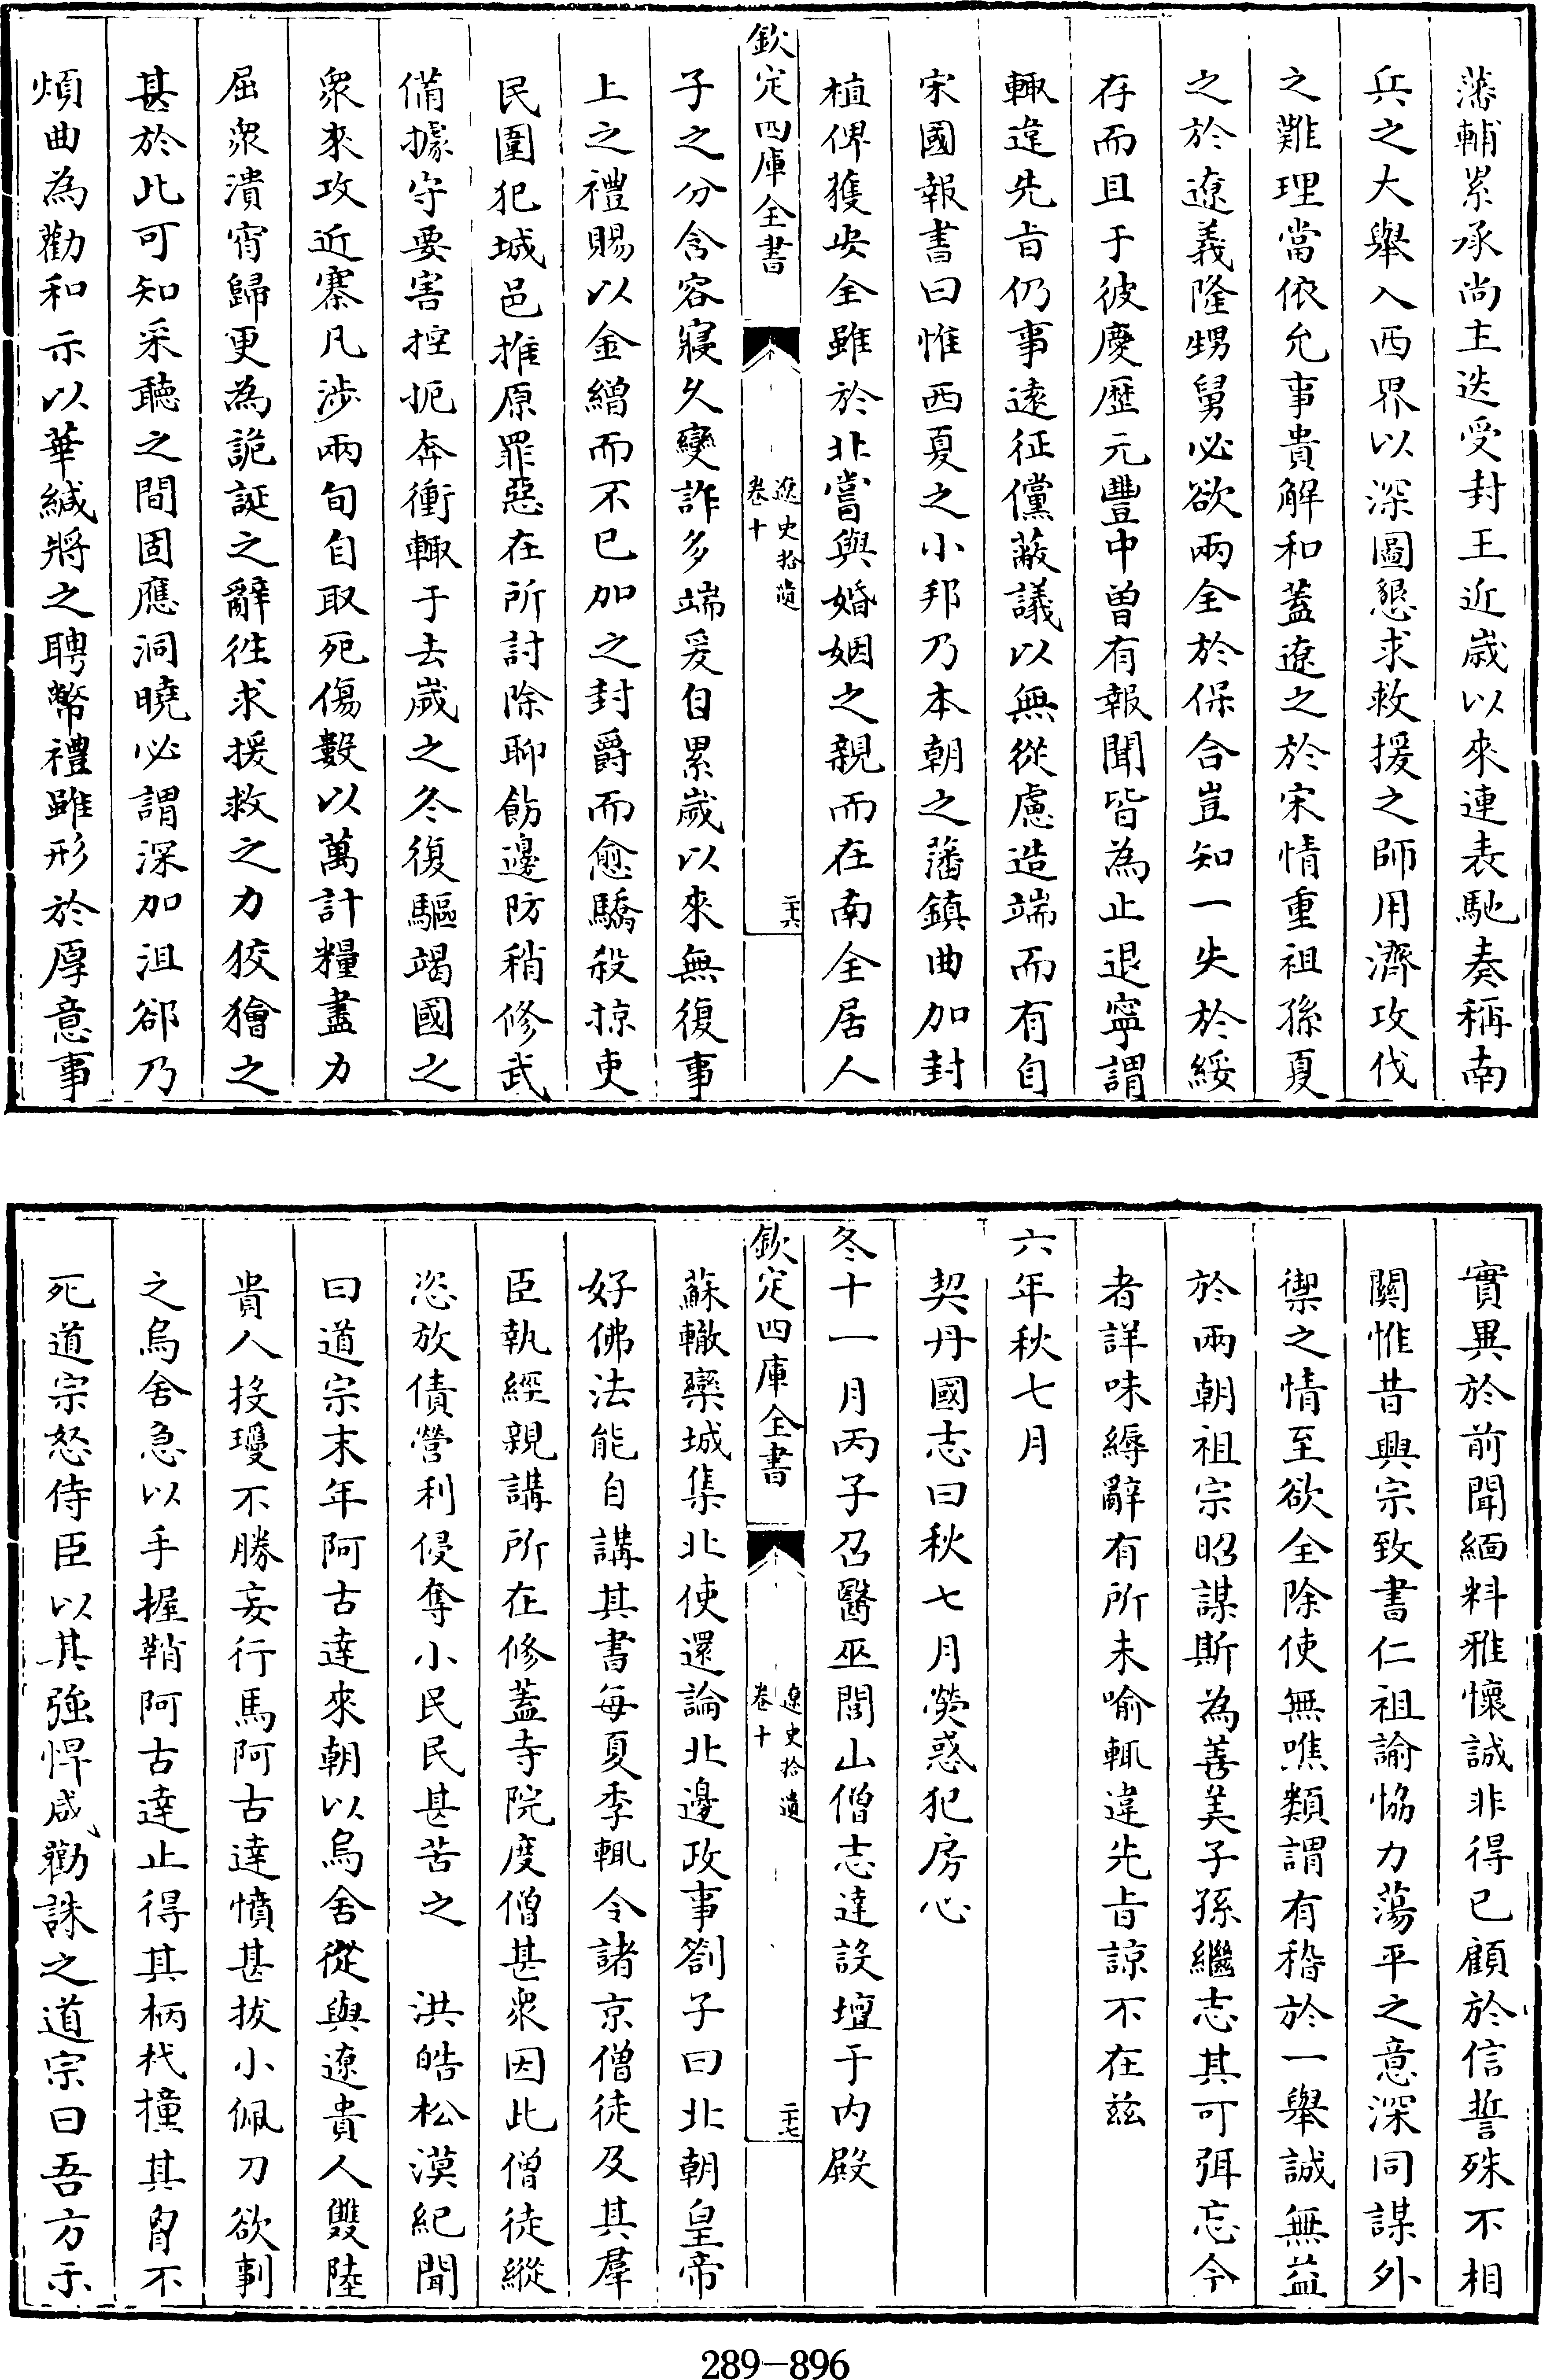 藩輔累承尚主迭受封王近歳以來連表馳奏稱南
兵之大舉入西界以深圖懇求救援之師用濟攻伐
之難理當依允事貴解和蓋遼之於宋情重祖孫夏
之於遼義隆甥舅必欲兩全於保合豈知一失於綏
存而且于彼慶歴元豐中曽有報聞皆為止退寧謂
輙違先㫖仍事逺征儻蔽議以無從慮造端而有自
宋國報書曰惟西夏之小邦乃本朝之藩鎮曲加封
植俾獲安全雖於北嘗與婚姻之親而在南全居人
欽定四庫全書
遼史拾遺
卷十
二十六
子之分含容寢久變詐多端爰自累歳以來無復事
上之禮賜以金繒而不已加之封爵而愈驕殺掠吏
民圍犯城邑推原罪惡在所討除聊飭邊防稍修武
備據守要害控扼奔衝輙于去歳之冬復驅竭國之
衆來攻近寨凡渉兩旬自取死傷數以萬計糧盡力
屈衆潰宵歸更為詭誕之辭徃求援救之力狡獪之
甚於此可知采聽之間固應洞曉必謂深加沮郤乃
煩曲為勸和示以華緘將之聘幣禮雖形於厚意事
實異於前聞緬料雅懷誠非得已顧於信誓殊不相
闗惟昔興宗致書仁祖諭恊力蕩平之意深同謀外
禦之情至欲全除使無噍類謂有稽於一舉誠無益
於兩朝祖宗昭謀斯為善美子孫繼志其可弭忘今
者詳味縟辭有所未喻輒違先㫖諒不在兹
六年秋七月
契丹國志曰秋七月熒惑犯房心
冬十一月丙子召醫巫閭山僧志達設壇于内殿
欽定四庫全書
遼史拾遺
卷十
二十七
蘇轍欒城集北使還論北邊政事劄子曰北朝皇帝
好佛法能自講其書每夏季輒令諸京僧徒及其羣
臣執經親講所在修蓋寺院度僧甚衆因此僧徒縱
恣放債營利侵奪小民民甚苦之　洪皓松漠紀聞
曰道宗末年阿古達來朝以烏舍從與遼貴人雙陸
貴人投瓊不勝妄行馬阿古達憤甚拔小佩刀欲剚
之烏舍急以手握鞘阿古達止得其柄杙撞其胷不
死道宗怒侍臣以其強悍咸勸誅之道宗曰吾方示
289-896